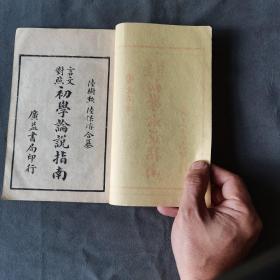 陸樹勳 陸保璿合纂
言文
對照
初學論說指南
廣益書局印行